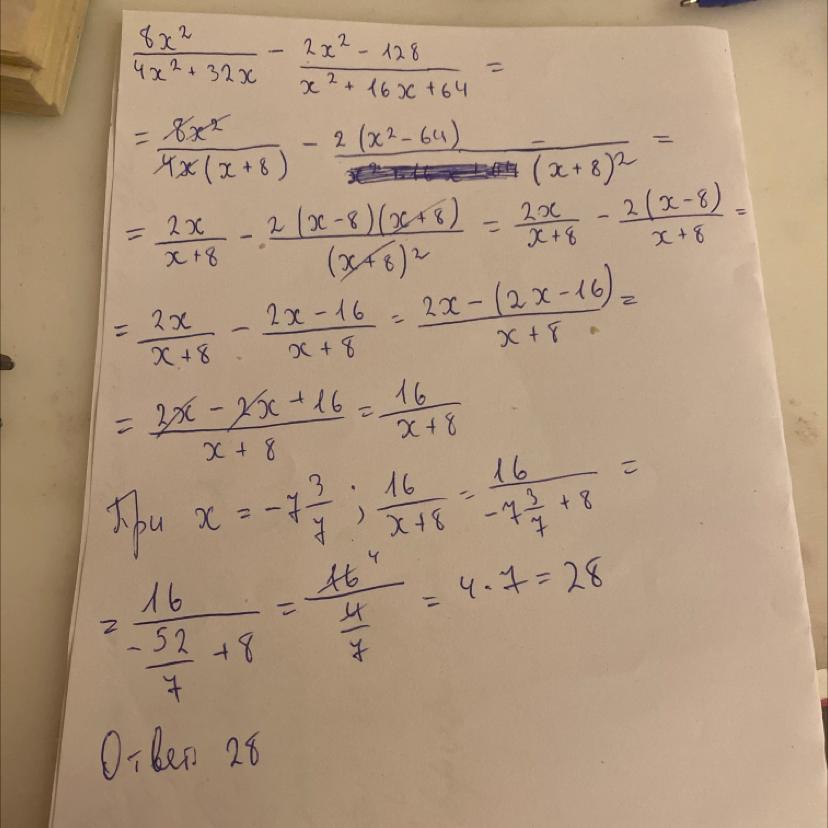 8x²/(4x² + 32x) − (2x² − 128)/(x² + 16x + 64) =
= 8x²/(4x(x + 8)) − 2(x² − 64)/(x + 8)² =
= 2x/(x + 8) − 2(x − 8)(x + 8)/(x + 8)² = 2x/(x + 8) − 2(x − 8)/(x + 8) =
= 2x/(x + 8) − (2x − 16)/(x + 8) = (2x − (2x − 16))/(x + 8) =
= (2x − 2x + 16)/(x + 8) = 16/(x + 8)
При x = −7 3/7 ; 16/(x + 8) = 16/(−7 3/7 + 8) =
= 16/(−52/7 + 8) = 16 4/(4/7) = 4 · 7 = 28
Ответ 28